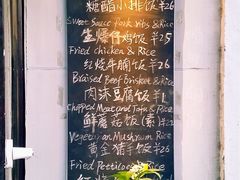 糖醋小排饭 ¥26
Sweet Sauce Pork ribs & Rice
生爆仔鸡饭 ¥25
Fried Chicken & Rice
红烧牛腩饭 ¥26
Braised Beef brisket & Rice
肉沫豆腐饭
Chopped Meat and Tofu & Rice
鲜蘑菇饭(素)
Vegetarian Mushroom Rice
黄金猪手饭 ¥26
Fried Pettitoes & Rice